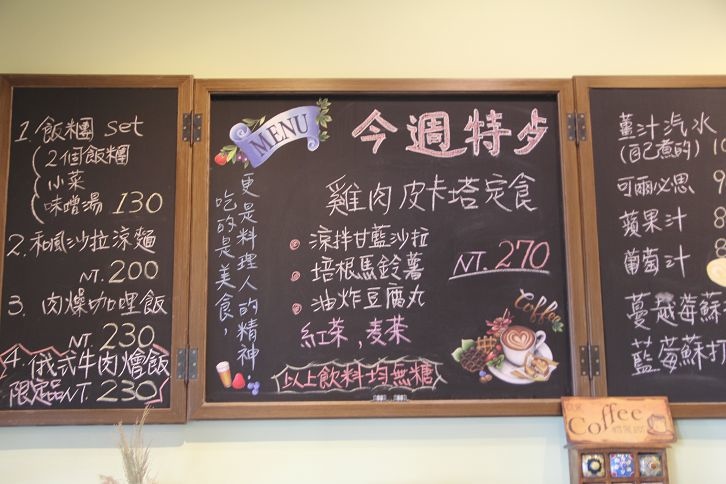 1. 飯糰 set
2個飯糰
小菜
味噌湯 130
2. 和風沙拉涼麵
NT. 200
3. 肉燥咖哩飯
NT. 230
4. 俄式牛肉燴飯
限定品 NT. 230
MENU
今週特歩
雞肉皮卡塔定食
涼拌甘藍沙拉
培根馬鈴薯
油炸豆腐丸
NT. 270
紅茶,麦茶
以上飲料均無糖
更是料理人的精神
吃的是美食,
Coffee
薑汁汽水
(自己煮的)
可爾必思
蘋果汁
葡萄汁
蔓越莓蘇
藍莓蘇打
Coffee